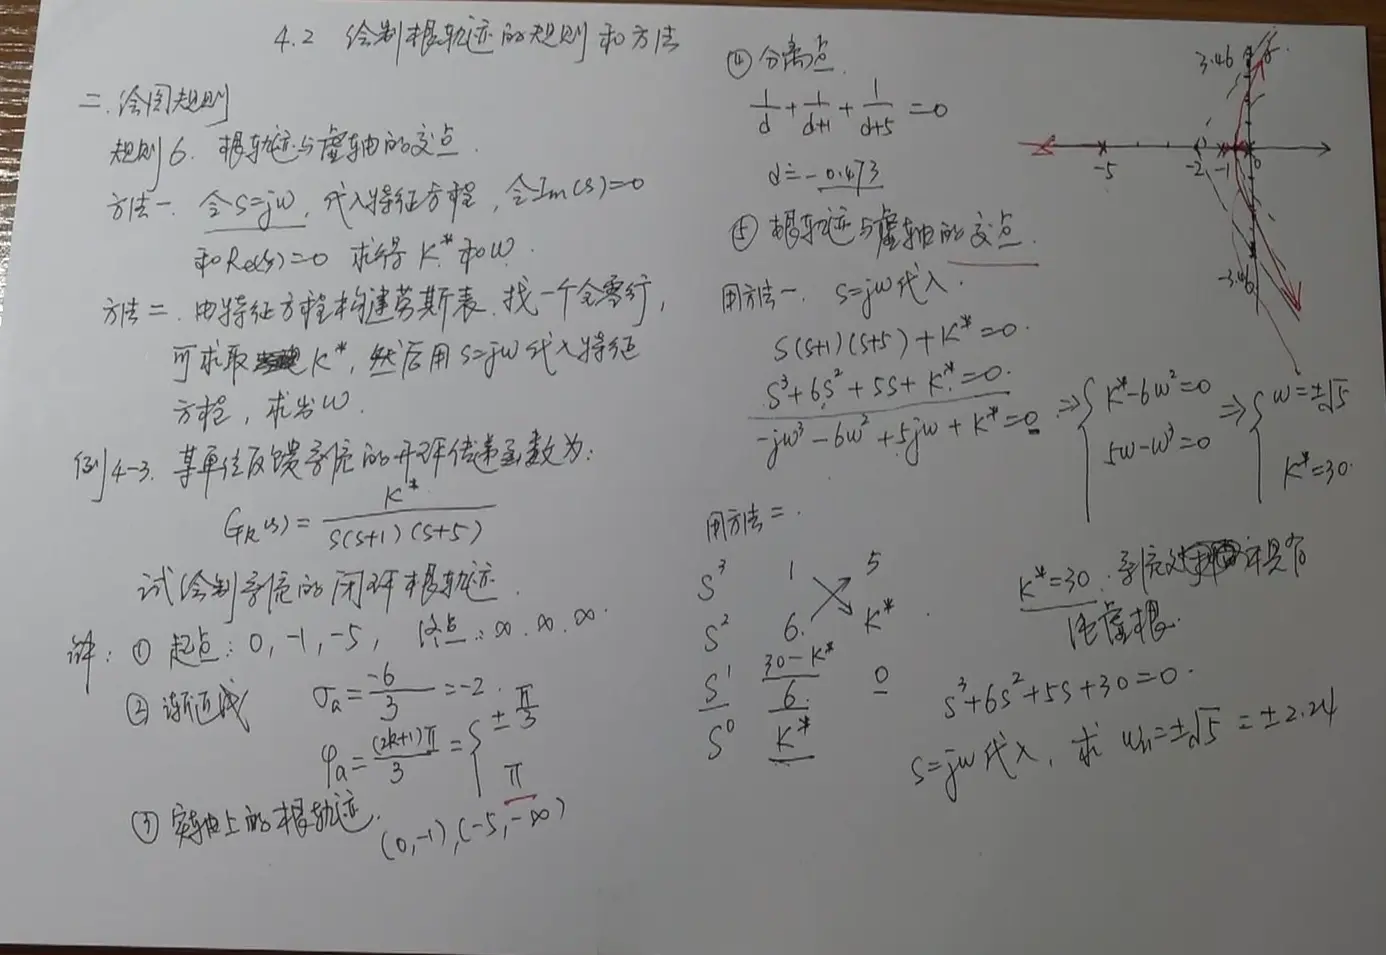 4.2 绘制根轨迹的规则和方法
二.绘图规则
规则6. 根轨迹与虚轴的交点.
方法一. 令S=jω, 代入特征方程, 令Im(s)=0
和Re(s)=0 求得 K*和ω.
方法二. 由特征方程构建劳斯表. 找一个全零行,
可求取 K*, 然后用 s=jω 代入特征
方程, 求出ω.
例4-3. 某单位反馈系统的开环传递函数为:
G_K(s) = K* / S(S+1)(S+5)
试绘制系统的闭环根轨迹.
解: ① 起点: 0, -1, -5, 终点: ∞. ∞. ∞.
② 渐近线 σa = -6/3 = -2.
φa = (2k+1)π/3 = { ±π/3
π
③ 实轴上的根轨迹.
(0,-1), (-5,-∞)
④ 分离点.
1/d + 1/(d+1) + 1/(d+5) = 0
d = -0.473
⑤ 根轨迹与虚轴的交点.
用方法一. S=jω代入.
S(S+1)(S+5) + K* = 0.
S³+6S²+5S+K* = 0.
-jω³ - 6ω² + 5jω + K* = 0 ⇒ { K*-6ω²=0
5ω-ω³=0
⇒ { ω=±√5
K*=30.
用方法二.
S³ 1 5
S² 6. K*
S¹ (30-K*)/6. 0
S⁰ K*
K*=30. 系统 具有
纯虚根.
S³+6S²+5S+30=0.
S=jω代入, 求 ωn=±√5=±2.24
3.46
-5
-2
-1
0
-3.46